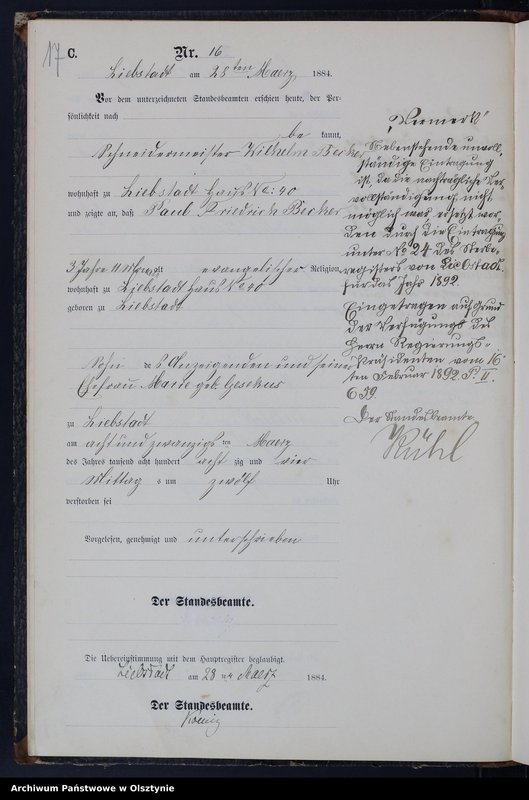 17
C.
Nr. 16
Liebstadt am 28ten Maerz 1884.
Vor dem unterzeichneten Standesbeamten erschien heute, der Per-
sönlichkeit nach
be kannt,
Schneidermeister Wilhelm Becker
wohnhaft zu Liebstadt Haus No: 40
und zeigte an, daß Paul Friedrich Becker
3 Jahre 11 Monat alt evangelischer Religion,
wohnhaft zu Liebstadt Haus No 40
geboren zu Liebstadt
Sohn des Anzeigenden und seiner
Ehefrau Marie geb.
zu Liebstadt
am acht und zwanzigs ten Maerz
des Jahres tausend acht hundert acht zig und vier
Mittag s um zwölf Uhr
verstorben sei
Vorgelesen, genehmigt und unterschrieben
Der Standesbeamte.
Die Uebereinstimmung mit dem Hauptregister beglaubigt.
Liebstadt am 28 ten Maerz 1884.
Der Standesbeamte.
"Vermerk"
Nebenstehende unvoll
ständige Eintragung
ist, da die nachträgliche Ver
vollständigung nicht
möglich war ersetzt wor
den durch die Eintragung
unter No 24 des Sterbe-
registers von Liebstadt
für das Jahr 1892.
Eingetragen auf Grund
der Verfügung des
Herrn Regierungs-
Präsidenten vom 16
ten Februar 1892. II.
639.
Der Standesbeamte
Kühl
Archiwum Państwowe w Olsztynie